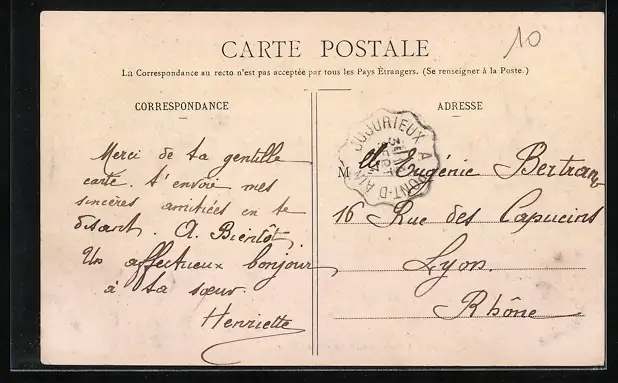 10
CARTE POSTALE
La Correspondance au recto n'est pas acceptée par tous les Pays Étrangers. (Se renseigner à la Poste.)
CORRESPONDANCE
Merci de ta gentille
carte. t'envoie mes
sincères amitiées en te
disant. A. Bientôt.
Un affectueux bonjour
à ta sœur.
Henriette
ADRESSE
JUJURIEUX A PONT-D-AIN
M Elle Eugénie Bertran
16 Rue des Capucins
Lyon.
Rhône